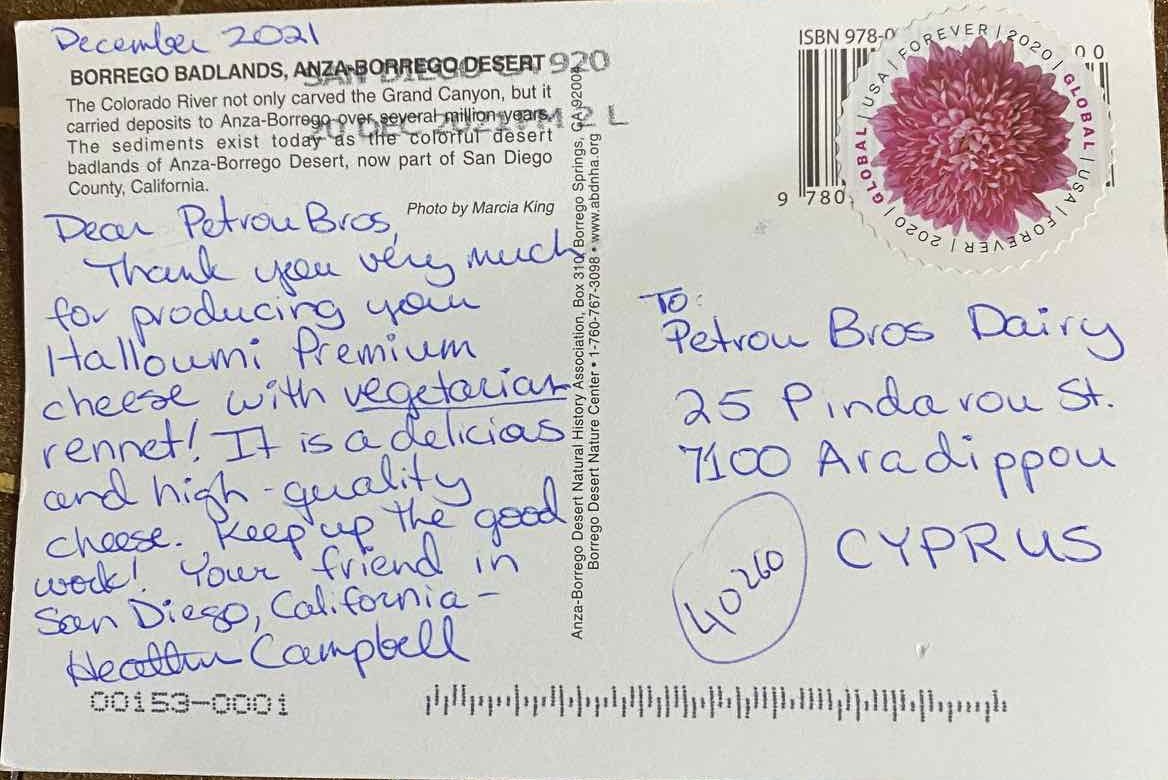 December 2021
BORREGO BADLANDS, ANZA-BORREGO DESERT
SAN DIEGO CA 920
The Colorado River not only carved the Grand Canyon, but it
carried deposits to Anza-Borrego over several million years.
20 DEC 2021 PM 2 L
The sediments exist today as the colorful desert
badlands of Anza-Borrego Desert, now part of San Diego
County, California.
Photo by Marcia King
Dear Petrou Bros,
Thank you very much
for producing your
Halloumi Premium
cheese with vegetarian
rennet! It is a delicias
and high-quality
cheese. Keep up the good
work! Your friend in
San Diego, California -
Heather Campbell
00153-0001
Anza-Borrego Desert Natural History Association, Box 310, Borrego Springs, CA 92004
Borrego Desert Nature Center • 1-760-767-3098 • www.abdnha.org
ISBN 978-0
00
9 780
GLOBAL | USA | FOREVER | 2020 | GLOBAL | USA | FOREVER | 2020 |
To:
Petrou Bros Dairy
25 Pindarou St.
7100 Aradippou
CYPRUS
40260